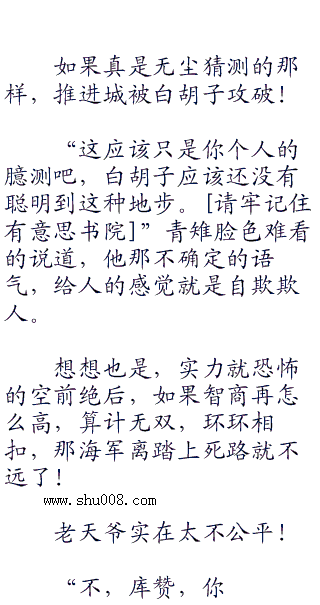 如果真是无尘猜测的那
样，推进城被白胡子攻破！
“这应该只是你个人的
臆测吧，白胡子应该还没有
聪明到这种地步。[请牢记住
有意思书院]”青雉脸色难看
的说道，他那不确定的语
气，给人的感觉就是自欺欺
人。
想想也是，实力就恐怖
的空前绝后，如果智商再怎
么高，算计无双，环环相
扣，那海军离踏上死路就不
远了！
www.shu008.com
老天爷实在太不公平！
“不，库赞，你